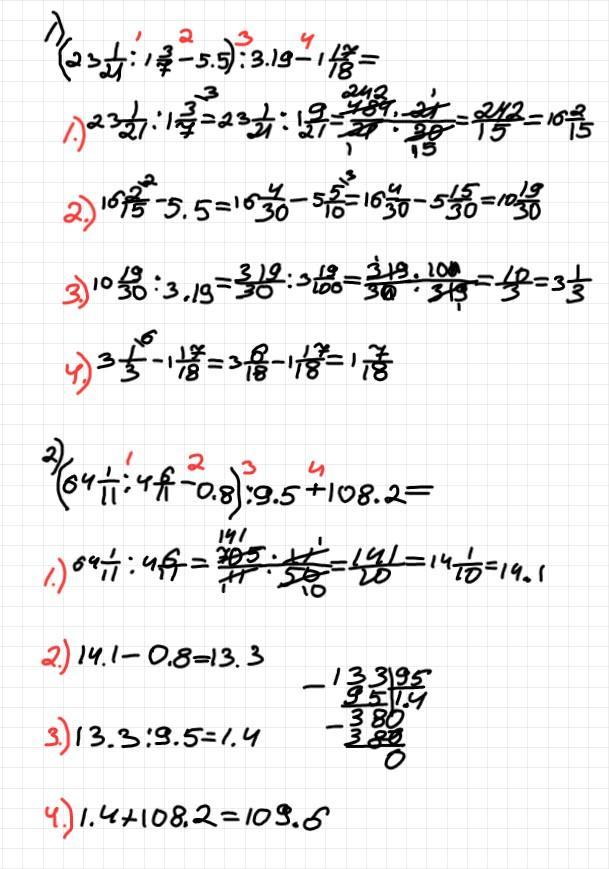 1)
(23 1/21 : 1 3/7 - 5.5) : 3.19 - 1 17/18 =
1 2 3 4
1.) 23 1/21 : 1 3/7 = 23 1/21 : 1 9/21 = 484 · 21 / 21 · 30 = 242/15 = 16 2/15
2.) 16 2/15 - 5.5 = 16 4/30 - 5 5/10 = 16 4/30 - 5 15/30 = 10 19/30
3.) 10 19/30 : 3.19 = 319/30 : 3 19/100 = 319 · 100 / 30 · 319 = 10/3 = 3 1/3
4.) 3 1/3 - 1 17/18 = 3 6/18 - 1 17/18 = 1 7/18
2)
(64 1/11 : 4 6/11 - 0.8) : 9.5 + 108.2 =
1 2 3 4
1.) 64 1/11 : 4 6/11 = 705 · 11 / 11 · 50 = 141/10 = 14 1/10 = 14.1
2.) 14.1 - 0.8 = 13.3
3.) 13.3 : 9.5 = 1.4
- 133 | 95
95 | 1.4
- 380
380
0
4.) 1.4 + 108.2 = 109.6